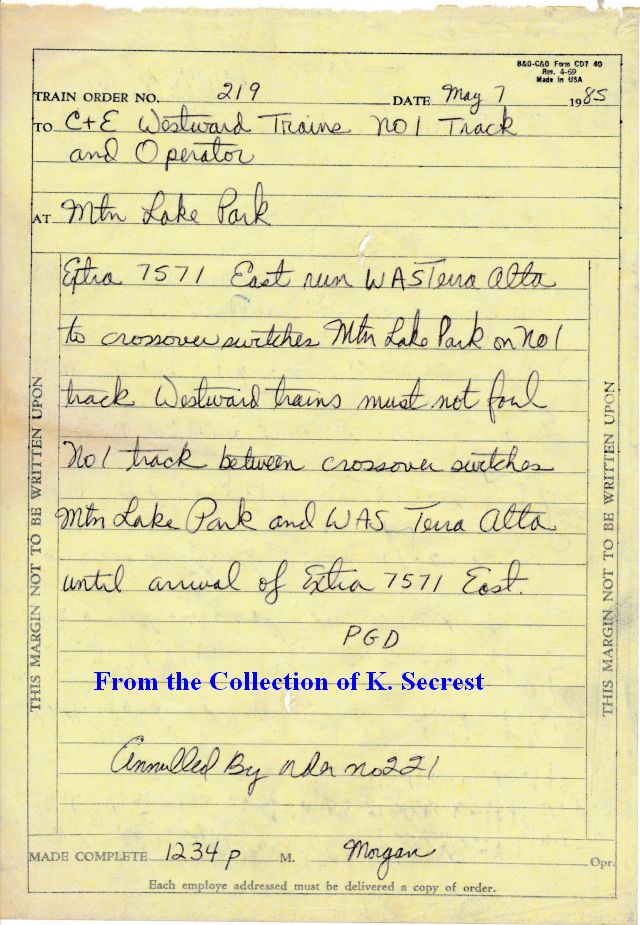 B&O-C&O Form CDT 40
Rev. 4-69
Made in USA
TRAIN ORDER NO. 219 DATE May 7 1985
TO C+E Westward Trains NO 1 Track
and Operator
AT Mtn Lake Park
Extra 7571 East run WAS Terra Alta
to crossover switches Mtn Lake Park on No 1
track Westward trains must not foul
No 1 track between crossover switches
Mtn Lake Park and WAS Terra Alta
until arrival of Extra 7571 East.
PGD
From the Collection of K. Secrest
Annulled By order no 221
MADE COMPLETE 1234 p M. Morgan Opr.
Each employe addressed must be delivered a copy of order.
THIS MARGIN NOT TO BE WRITTEN UPON
THIS MARGIN NOT TO BE WRITTEN UPON